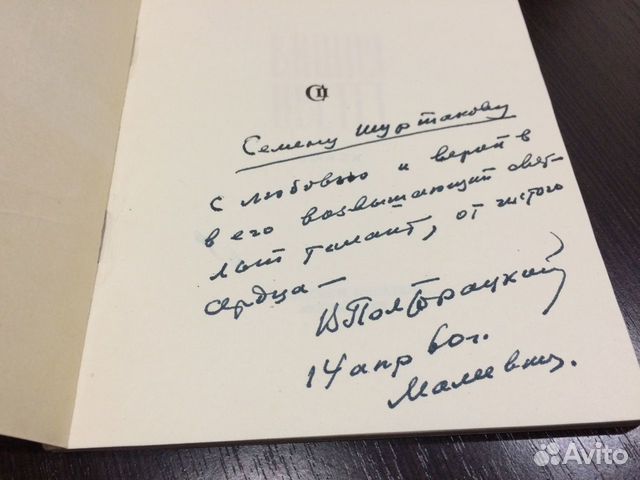 СП
Семену Шуртакову
с любовью и верой в
в его возвышающий свет-
лый талант, от чистого
сердца —
В Полторацкий
14 апр 60г.
Малеевка.
Avito